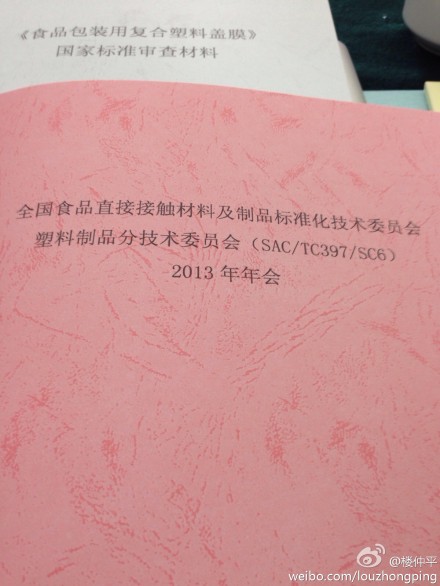 《食品包装用复合塑料盖膜》
国家标准审查材料
全国食品直接接触材料及制品标准化技术委员会
塑料制品分技术委员会（SAC/TC397/SC6）
2013 年年会
@楼仲平
weibo.com/louzhongping